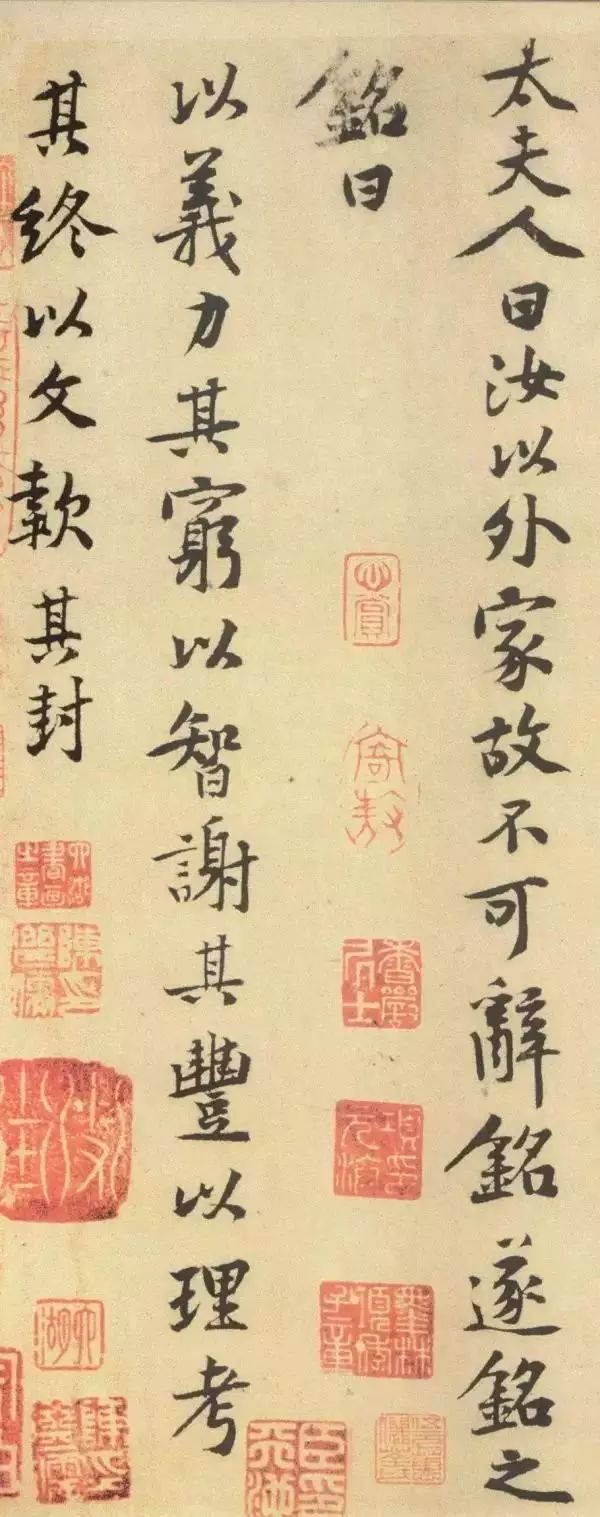 太夫人曰汝以外家故不可辭銘遂銘之
銘曰
以義力其窮以智謝其豐以理考
其終以文款其封